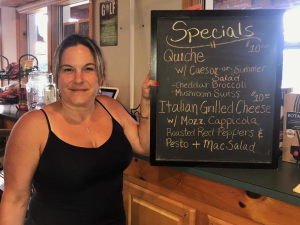 Specials
Quiche $10.00
w/ Caesar or Summer
Salad
-Cheddar Broccoli
-Mushroom Swiss
Italian Grilled Cheese $10.00
w/ Mozz Cappicola
Roasted Red Peppers &
Pesto + Mac Salad
GOLF